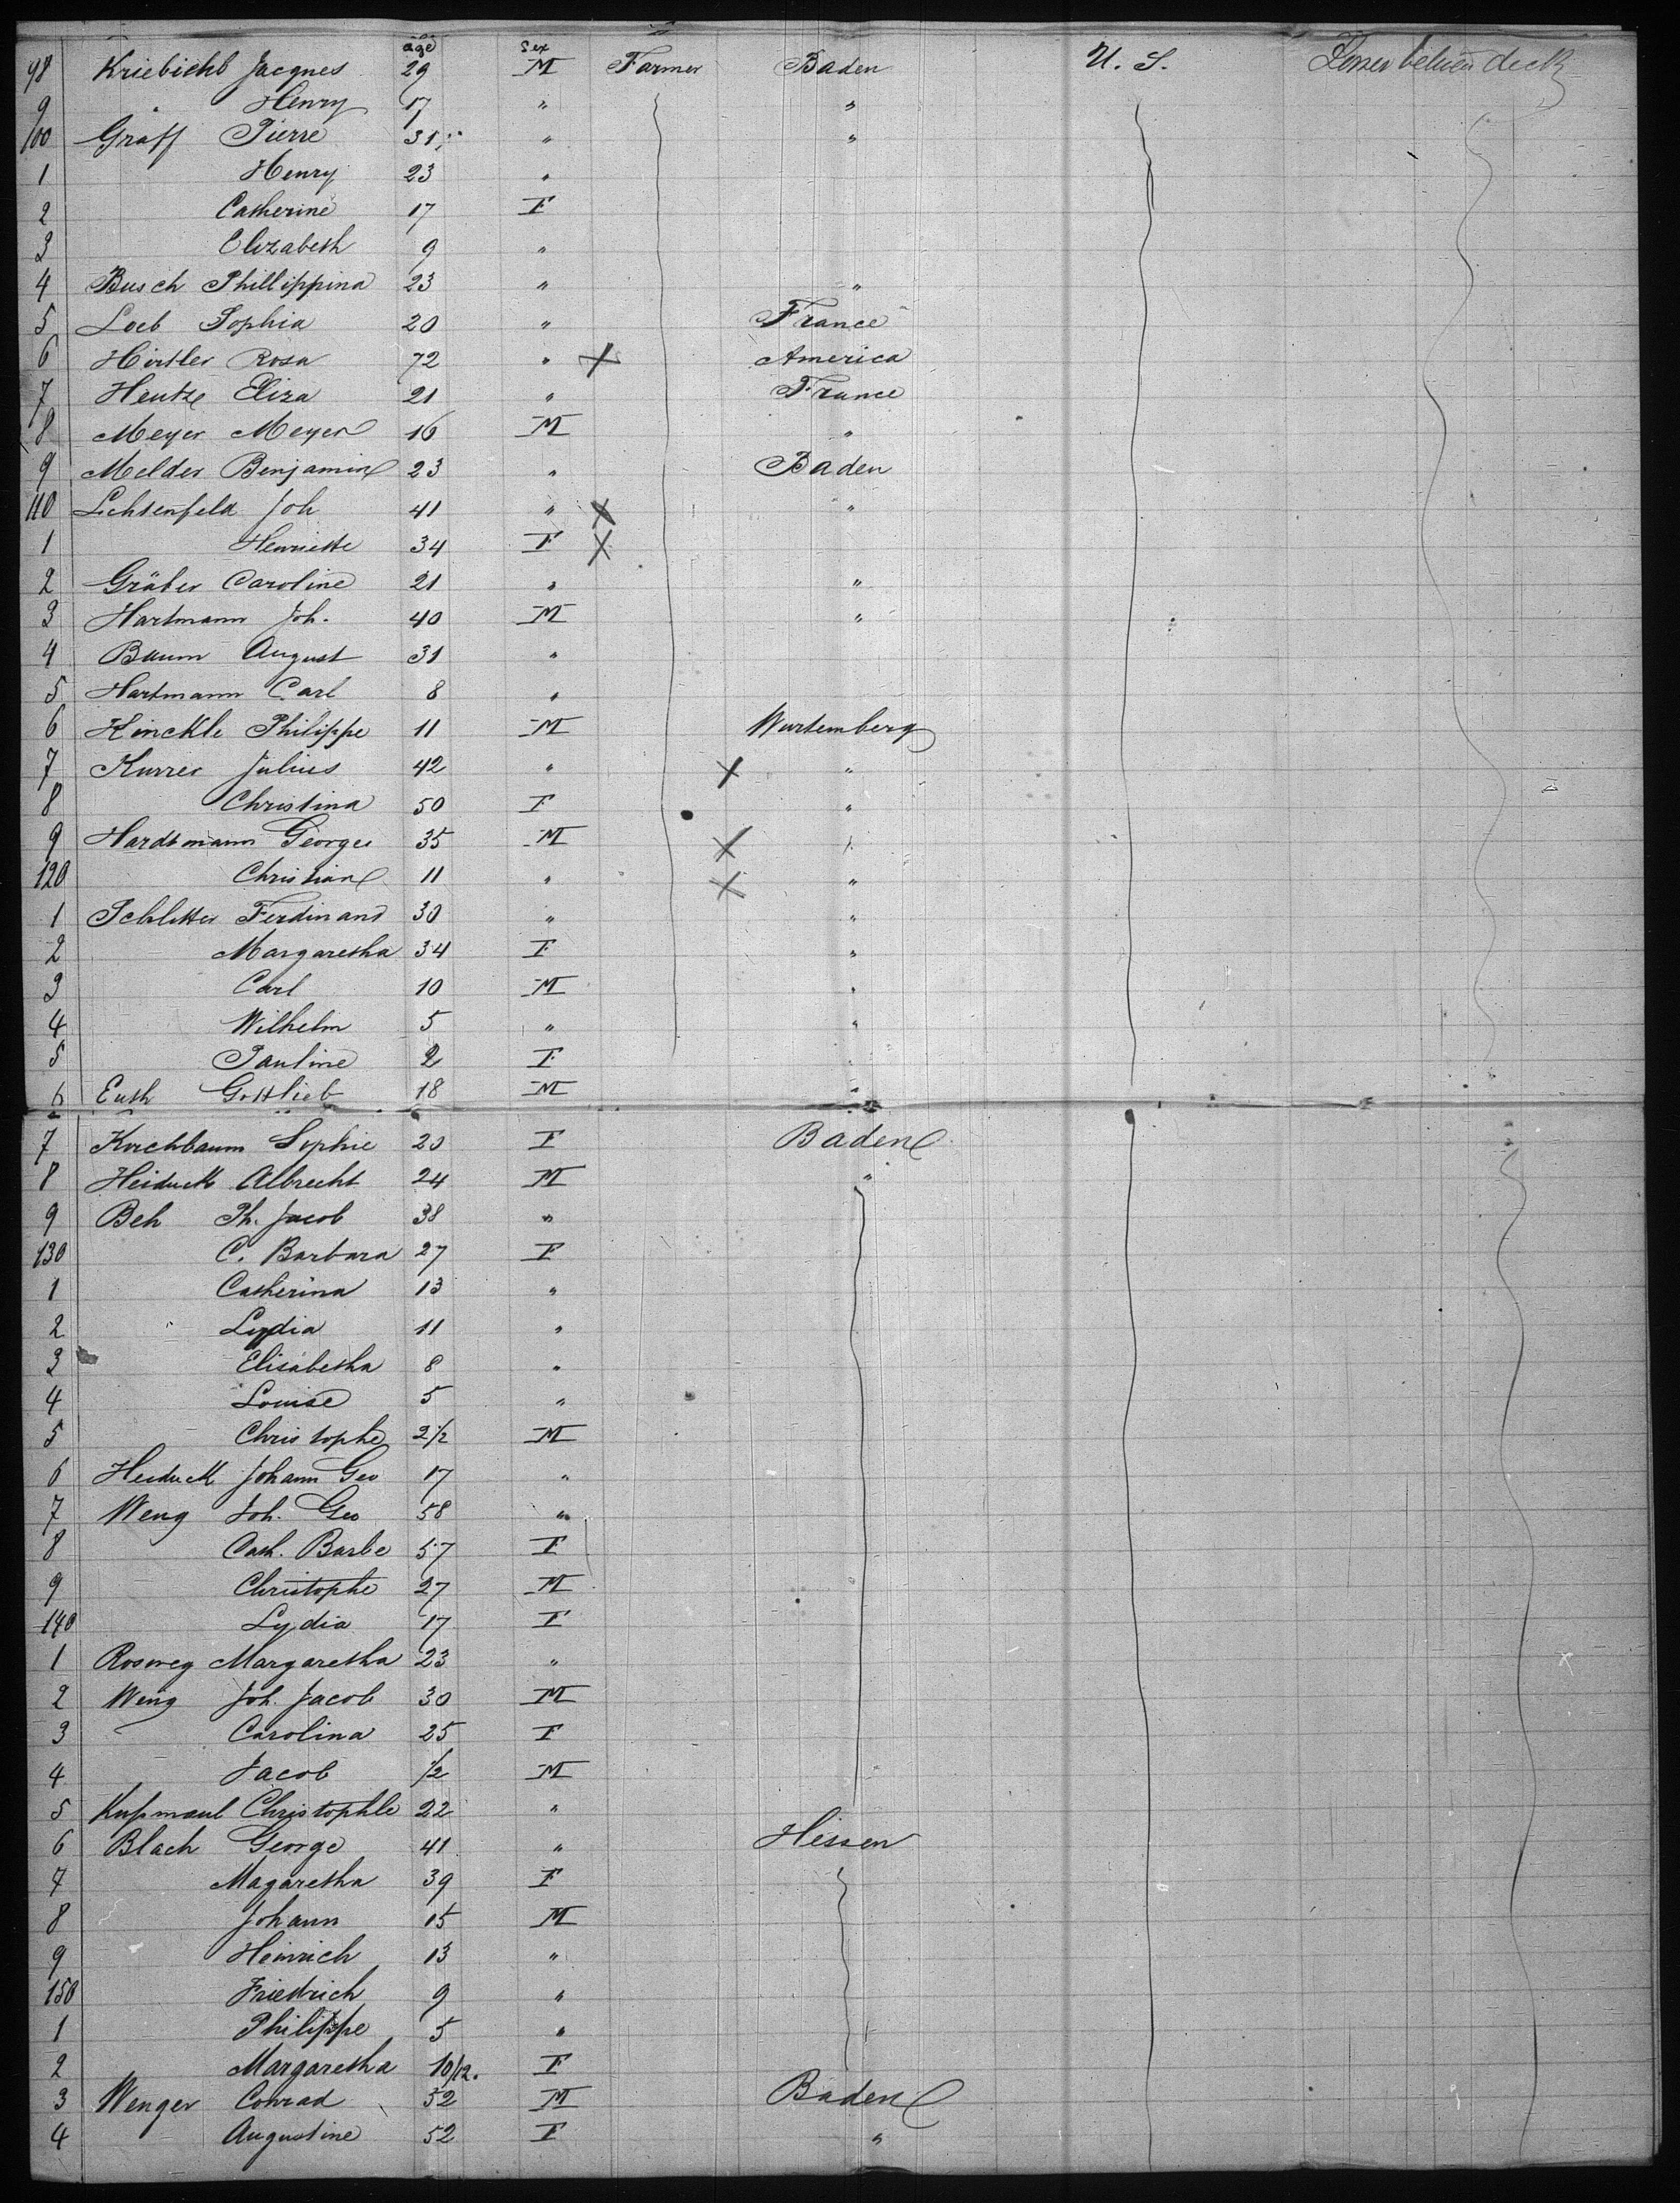 age Sex
98 Jacques 29 M Farmer Baden U. S. Lower between deck
9 " Henry 17 " "
100 Graff Pierre 31 " "
1 Henry 23 "
2 Catherine 17 F
3 Elizabeth 9 "
4 Busch Phillippina 23 " "
5 Loeb Sophia 20 " France
6 Hirtler Rosa 72 " X America
7 Hentze Eliza 21 " France
8 Meyer Meyer 16 M "
9 Melder Benjamin 23 " Baden
110 Lichtenfeld Joh 41 " X "
1 Henriette 34 F X
2 Gräber Caroline 21 " "
3 Hartmann Joh. 40 M "
4 Baum August 31 "
5 Hartmann Carl 8 "
6 Hinckle Philippe 11 M Wurtemberg
7 Kurrer Julius 42 " X "
8 Christina 50 F "
9 Hardtmann George 35 M X "
120 Christian 11 " X "
1 Schlitter Ferdinand 30 " "
2 Margaretha 34 F "
3 Carl 10 M "
4 Wilhelm 5 " "
5 Pauline 2 F "
6 Euth Gottlieb 18 M "
7 Kirchbaum Sophie 20 F Baden
8 Albrecht 24 M "
9 Beh Ph. Jacob 38 "
130 C. Barbara 27 F
1 Catherina 13 "
2 Lydia 11 "
3 Elisabetha 8 "
4 Louise 5 "
5 Christophe 2 1/2 M
6 Johann Geo 17 "
7 Weng Joh. Geo 58 "
8 Cath. Barbe 57 F
9 Christophe 27 M
140 Lydia 17 F
1 Rosweg Margaretha 23 "
2 Weng Joh. Jacob 30 M
3 Carolina 25 F
4 Jacob 1/2 M
5 Kußmaul Christophle 22 "
6 Blach George 41 " Hessen
7 Magaretha 39 F
8 Johann 15 M
9 Heinrich 13 "
150 Friedrich 9 "
1 Philippe 5 "
2 Margaretha 10/12. F
3 Wenger Conrad 52 M Baden
4 Augustine 52 F "